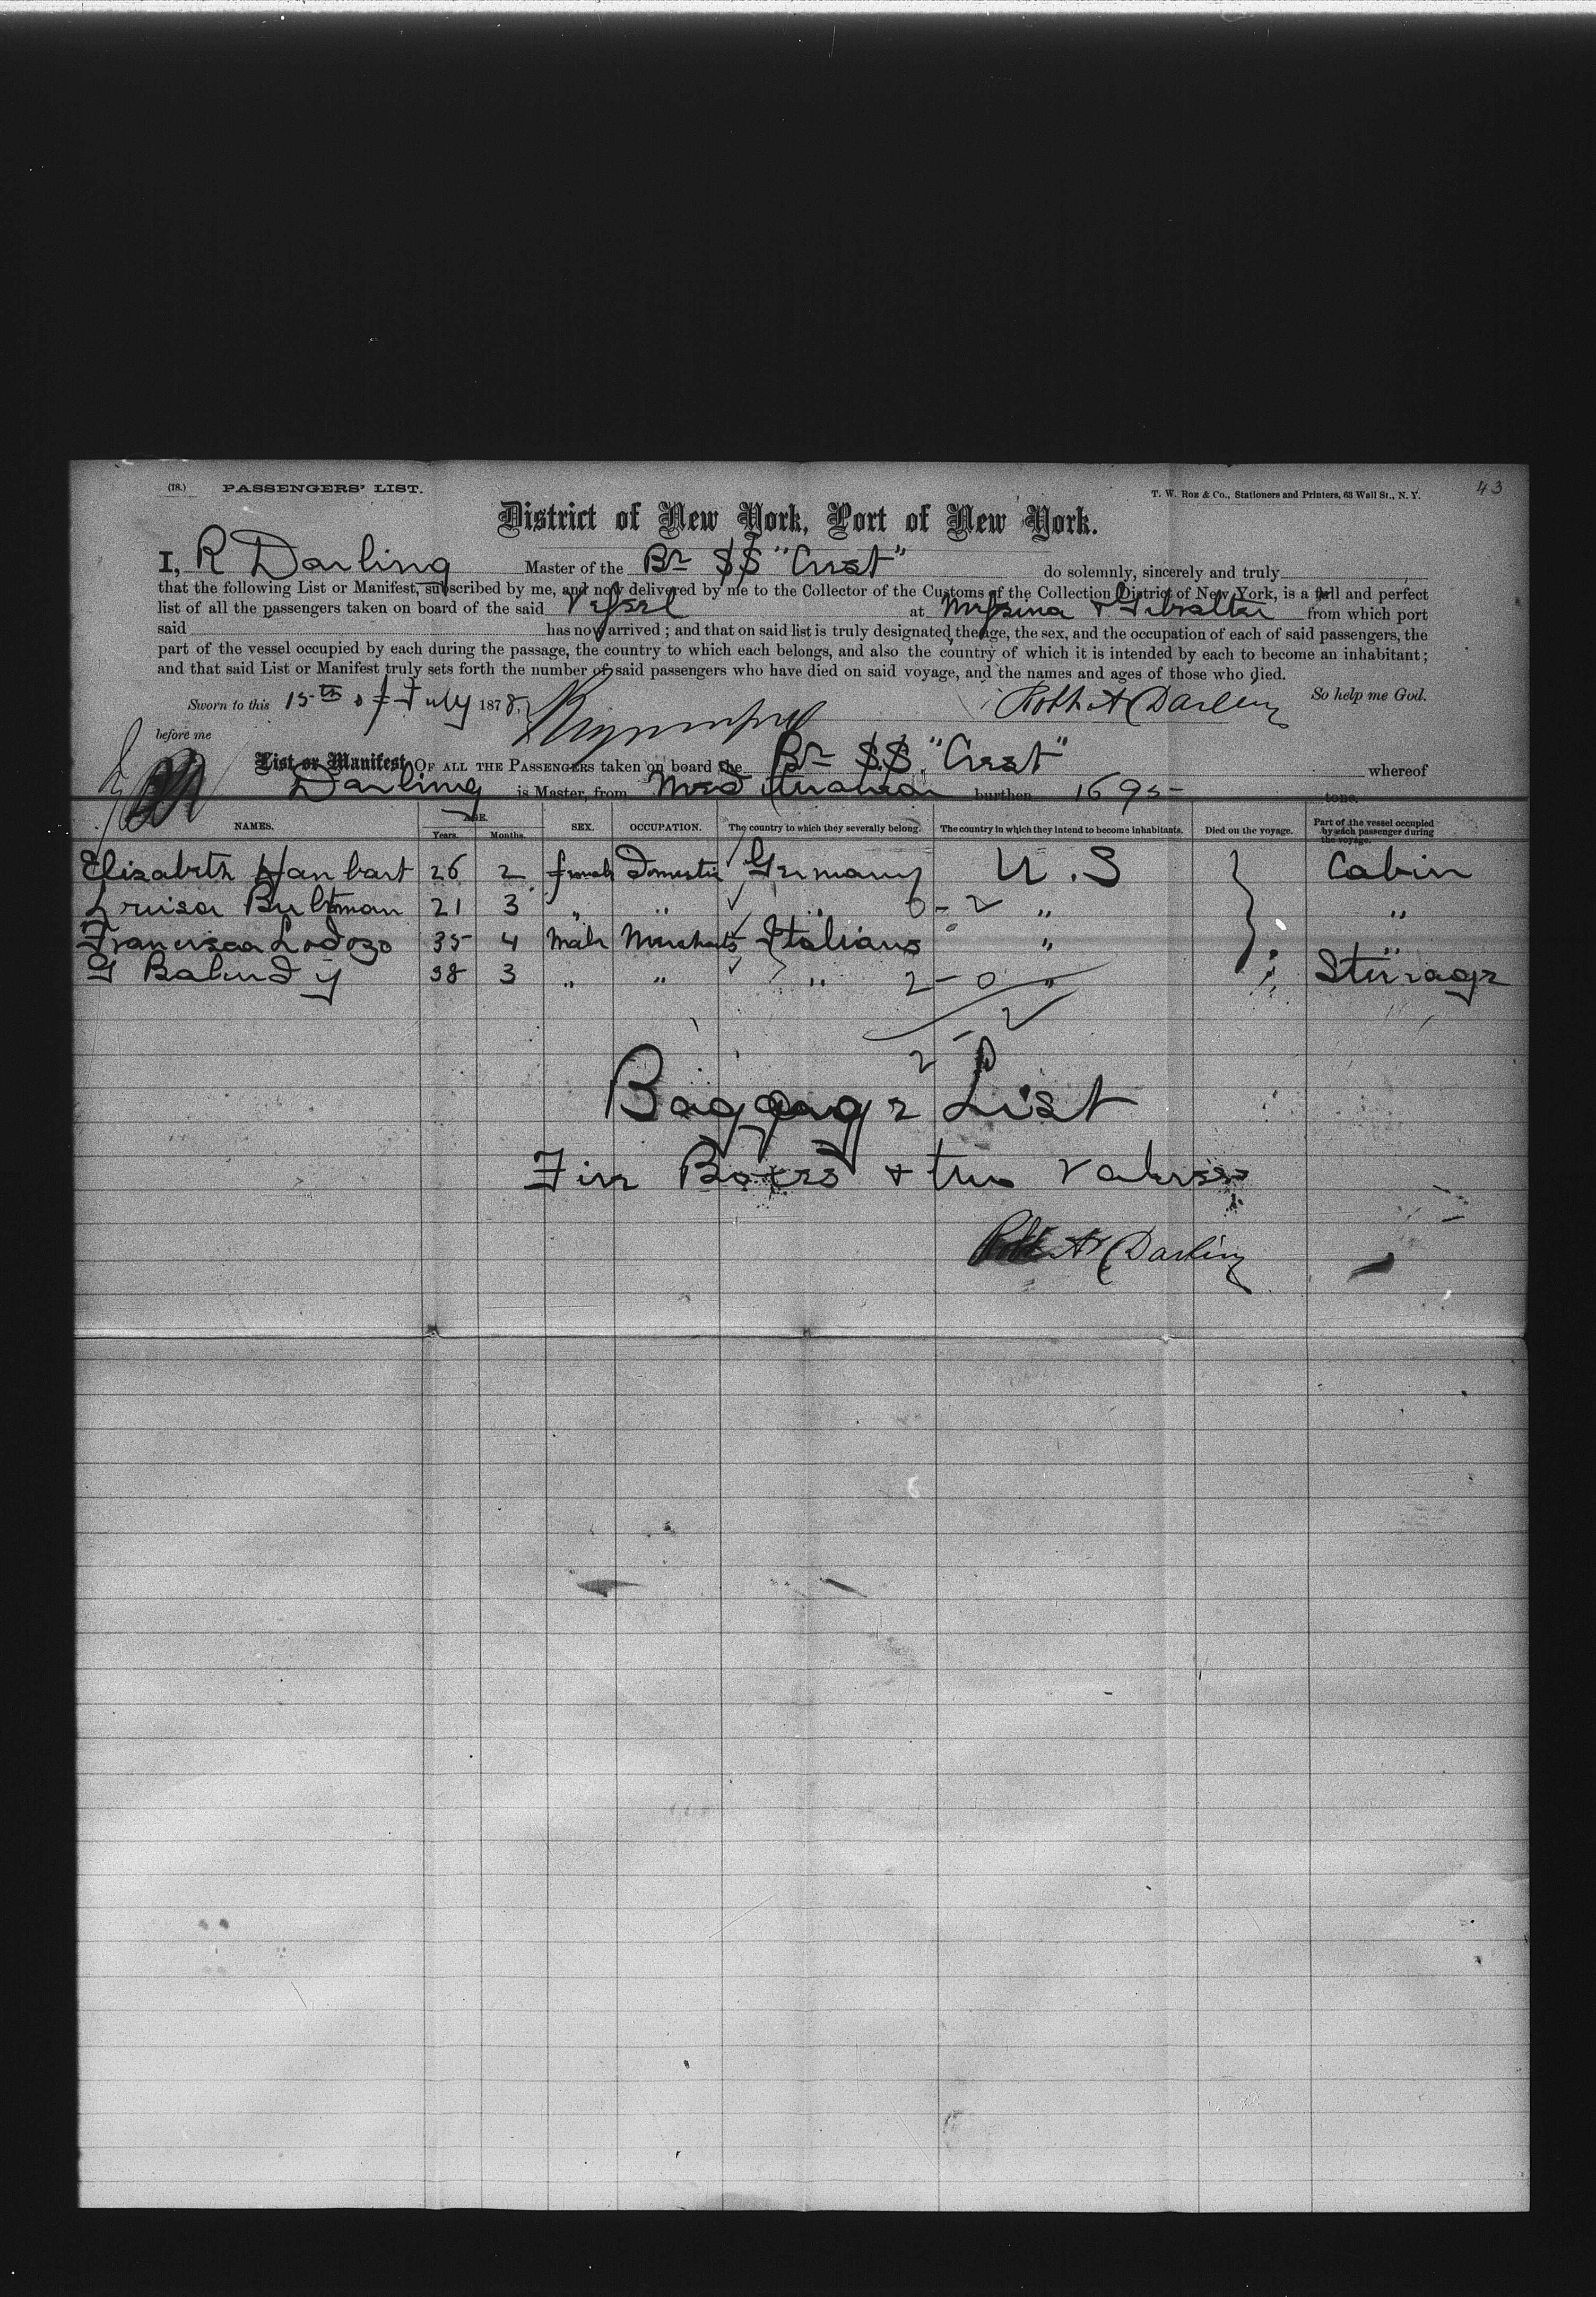 (18.) PASSENGERS' LIST. T. W. Roe & Co., Stationers and Printers, 63 Wall St., N. Y. 43
District of New York, Port of New York.
I, R Darling Master of the Br SS "Crest" do solemnly, sincerely and truly
that the following List or Manifest, subscribed by me, and now delivered by me to the Collector of the Customs of the Collection District of New York, is a full and perfect
list of all the passengers taken on board of the said Vessel at Messina & Gibralter from which port
said has now arrived; and that on said list is truly designated the age, the sex, and the occupation of each of said passengers, the
part of the vessel occupied by each during the passage, the country to which each belongs, and also the country of which it is intended by each to become an inhabitant;
and that said List or Manifest truly sets forth the number of said passengers who have died on said voyage, and the names and ages of those who died.
Sworn to this 15th of July 1878, Robt A Darling So help me God.
before me
List or Manifest OF ALL THE PASSENGERS taken on board the Br SS. "Crest" whereof
Darling is Master, from burthen 1695 tons.
NAMES. AGE. Years. Months. SEX. OCCUPATION. The country to which they severally belong. The country in which they intend to become inhabitants. Died on the voyage. Part of the vessel occupied by each passenger during the voyage.
Elizabeth Hanbart 26 2 female Domestic Germany U.S Cabin
Louisa Bultman 21 3 " " " 0-2 " "
Francisca Lodozo 35 4 Male Merchants Italians " "
G 38 3 " " " 2-0 " Steerage
2-2
Baggage List
Five Boxes & two Valises
Robt A Darling